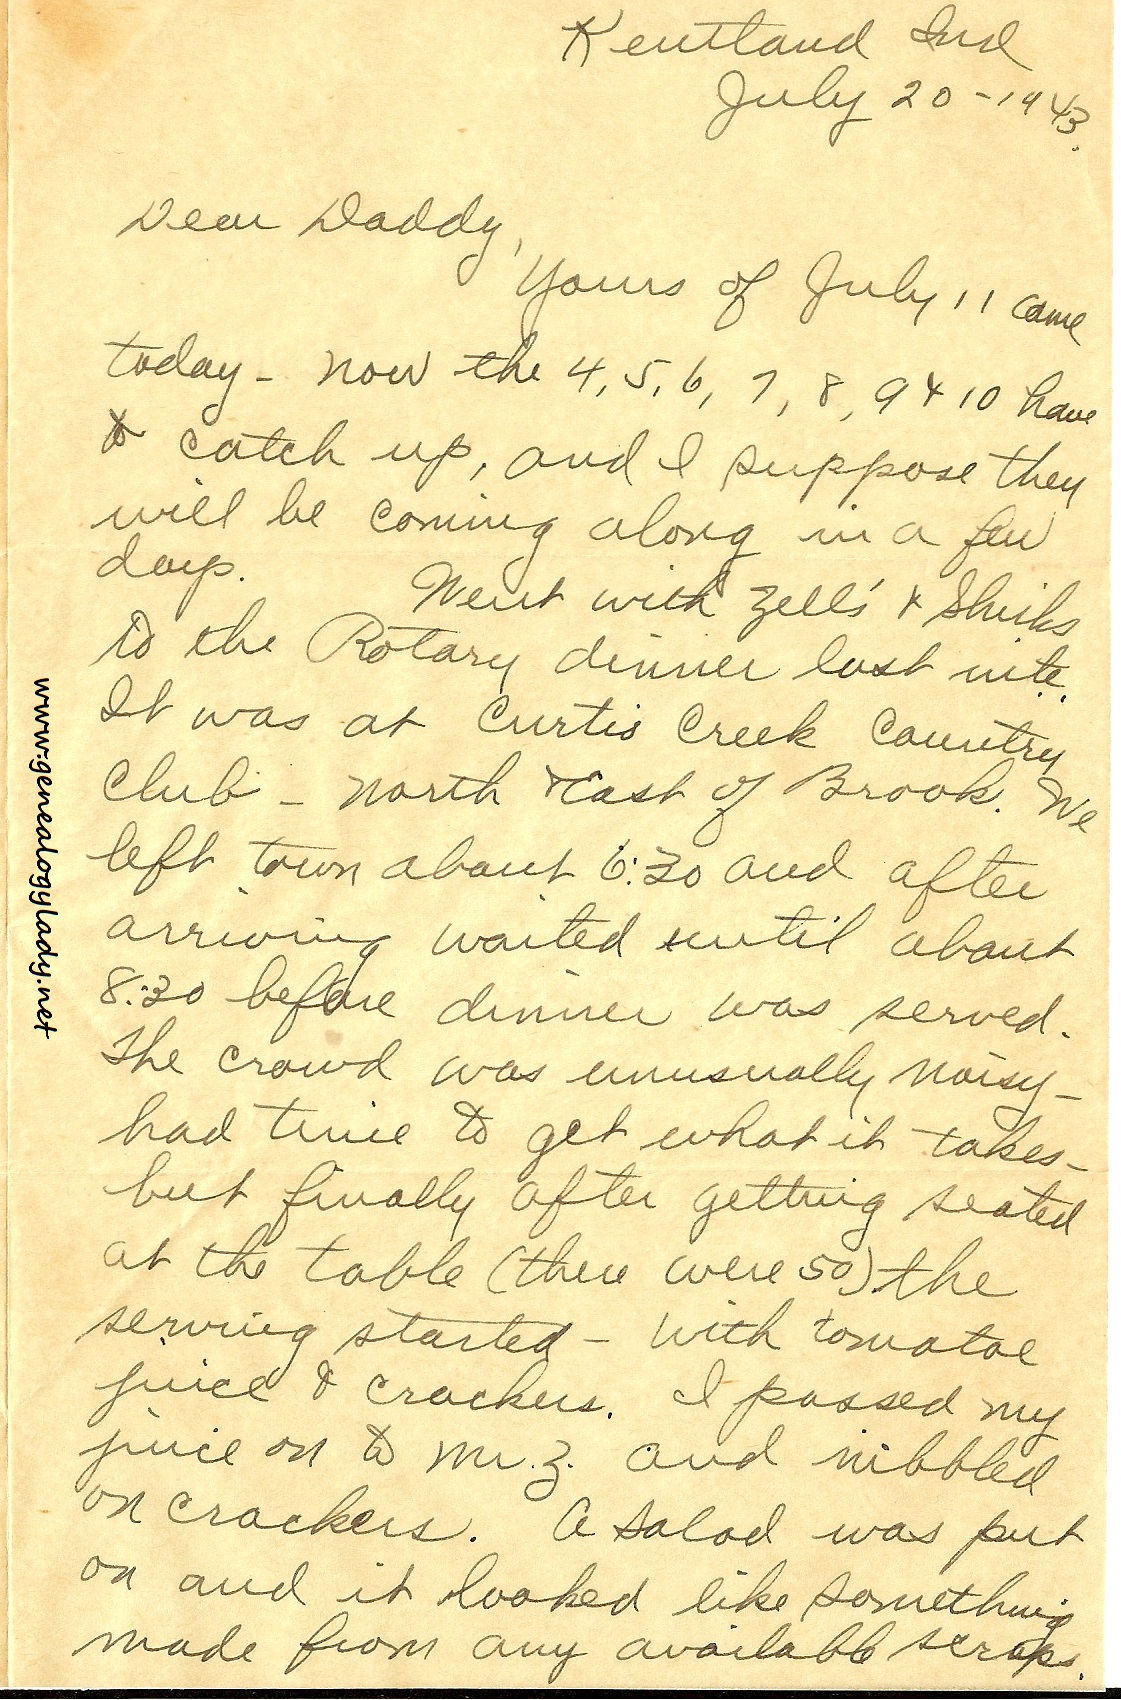 Kentland Ind
July 20-1943.
Dear Daddy,
Yours of July 11 came
today - now the 4, 5, 6, 7, 8, 9 & 10 have
to catch up, and I suppose they
will be coming along in a few
days. Went with Zell's & Shirks
to the Rotary dinner last nite.
It was at Curtis Creek Country
Club - north & east of Brook. We
left town about 6:30 and after
arriving waited until about
8:30 before dinner was served.
The crowd was unusually noisy -
had time to get what it takes -
but finally after getting seated
at the table (there were 50) the
serving started - with tomatoe
juice & crackers. I passed my
juice on to Mr. Z. and nibbled
on crackers. A salad was put
on and it looked like something
made from any available scraps.
www.genealogylady.net